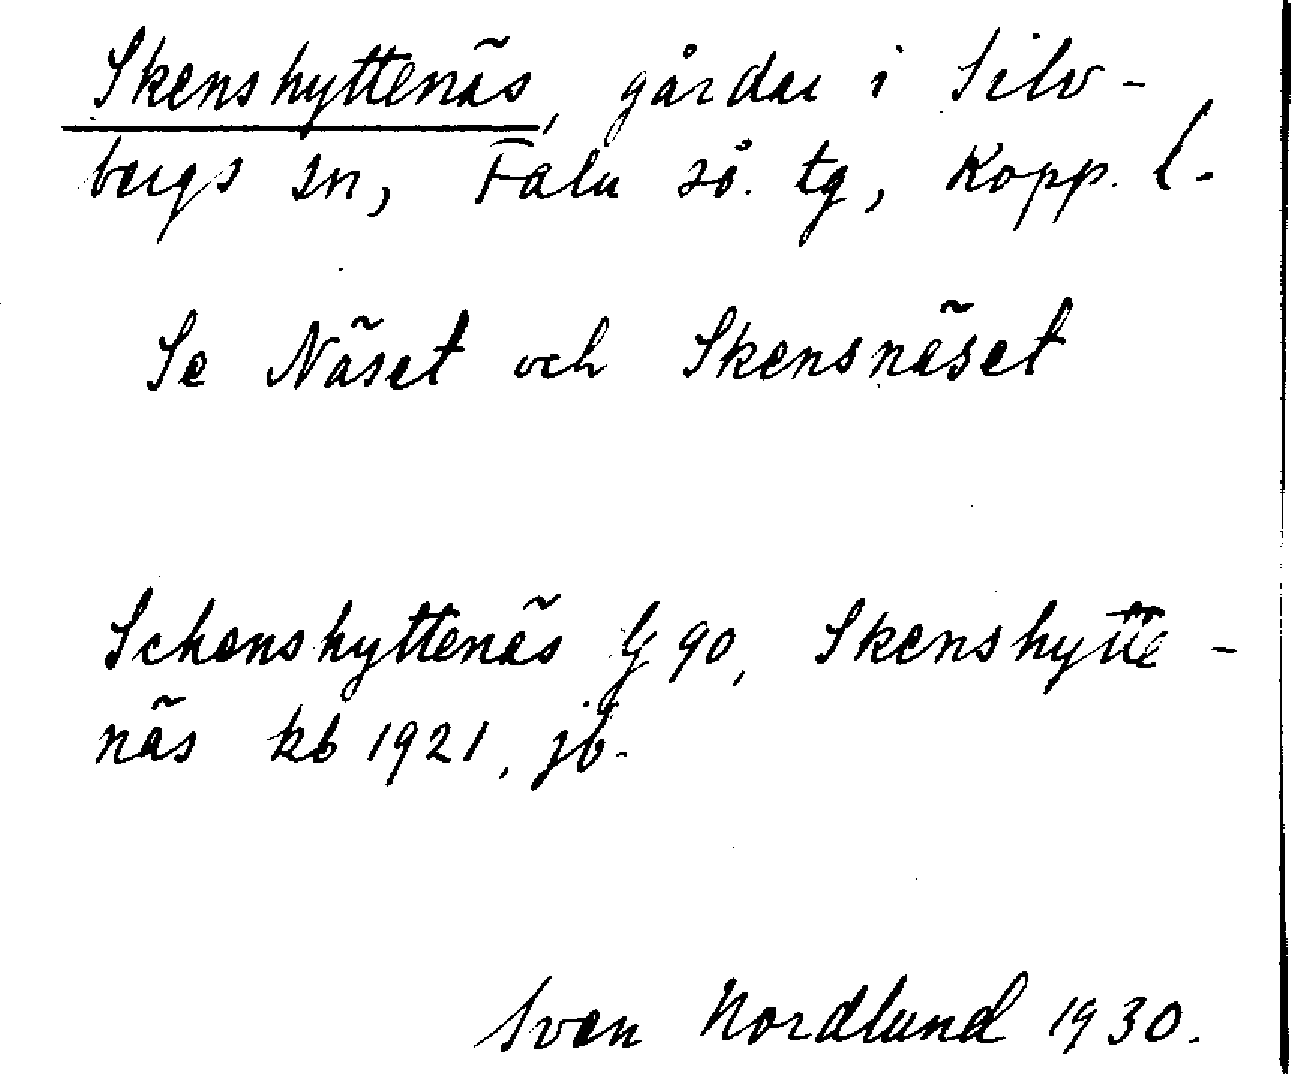 Skenshyttenäs, gårdar i Silv-
bergs sn, Falu sö. tg, Kopp. l.
Se Näset och Skensnäset
Schenshyttenäs 90, Skenshytte-
näs kb 1921, jb.
Sven Nordlund 1930.